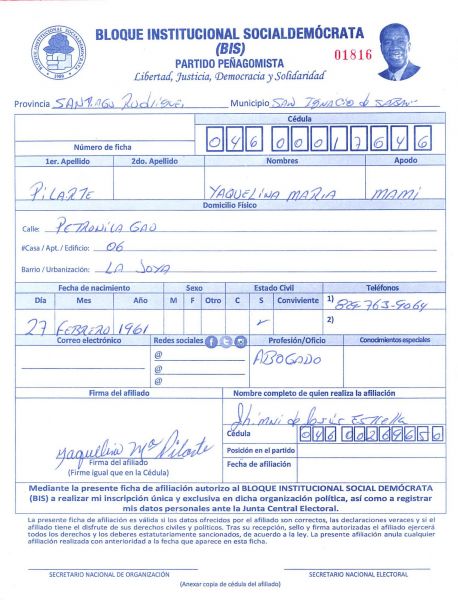 BLOQUE INSTITUCIONAL SOCIALDEMÓCRATA
(BIS)
PARTIDO PEÑAGOMISTA
Libertad, Justicia, Democracia y Solidaridad
01816
BLOQUE INSTITUCIONAL SOCIALDEMÓCRATA
Provincia SANTIAGO RODRIGUEZ Municipio SAN IGNACIO de SABAN
Cédula
Número de ficha 046 0001764 6
1er. Apellido 2do. Apellido Nombres Apodo
PILARTE YAQUELINA MARIA MAMI
Domicilio Físico
Calle: PETRONILA GAO
#Casa / Apt. / Edificio: 06
Barrio / Urbanización: LA JOYA
Fecha de nacimiento Sexo Estado Civil Teléfonos
Día Mes Año M F Otro C S Conviviente 1) 829-763-9064
27 FEBRERO 1961 ✓ 2)
Correo electrónico Redes sociales Profesión/Oficio Conocimientos especiales
@ ABOGADO
@
@
Firma del afiliado Nombre completo de quien realiza la afiliación
Jhimni de Jesús Estrella
Yaquelina Mª Pilarte Cédula 046 0026965 0
Firma del afiliado Posición en el partido
(Firme igual que en la Cédula) Fecha de afiliación
Mediante la presente ficha de afiliación autorizo al BLOQUE INSTITUCIONAL SOCIAL DEMÓCRATA
(BIS) a realizar mi inscripción única y exclusiva en dicha organización política, así como a registrar
mis datos personales ante la Junta Central Electoral.
La presente ficha de afiliación es válida si los datos ofrecidos por el afiliado son correctos, las declaraciones veraces y si el
afiliado tiene el disfrute de sus derechos civiles y políticos. Tras su recepción, sello y firma autorizadas el afiliado ejercerá
todos los derechos y los deberes estatutariamente sancionados, de acuerdo a la ley. La presente afiliación anula cualquier
afiliación realizada con anterioridad a la fecha que aparece en esta ficha.
SECRETARIO NACIONAL DE ORGANIZACIÓN SECRETARIO NACIONAL ELECTORAL
(Anexar copia de cédula del afiliado)